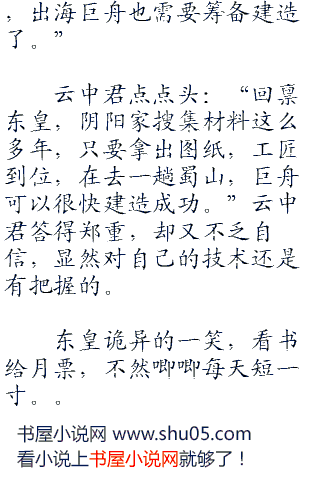 ，出海巨舟也需要筹备建造
了。”
云中君点点头：“回禀
东皇，阴阳家搜集材料这么
多年，只要拿出图纸，工匠
到位，在去一趟蜀山，巨舟
可以很快建造成功。”云中
君答得郑重，却又不乏自
信，显然对自己的技术还是
有把握的。
东皇诡异的一笑，看书
给月票，不然唧唧每天短一
寸。。
书屋小说网 www.shu05.com
看小说上书屋小说网就够了！